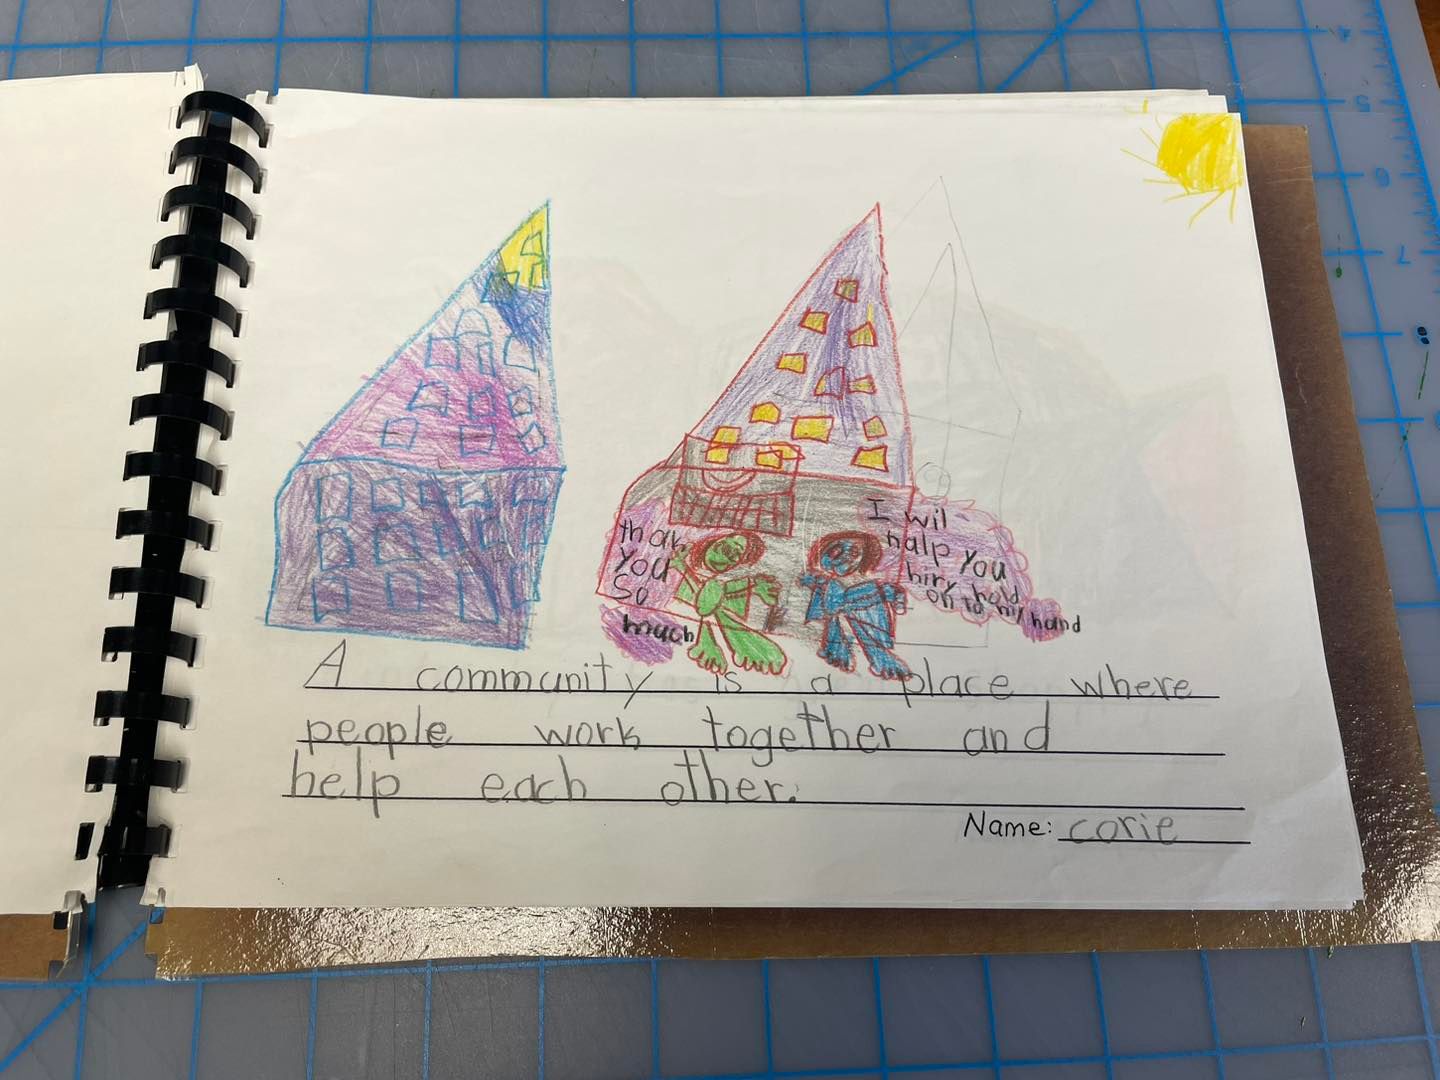 thak
you
so
much
I wil
halp you
hiry hold
on to my hand
A community is a place where
people work together and
help each other.
Name: corie
4
5
6
7
8